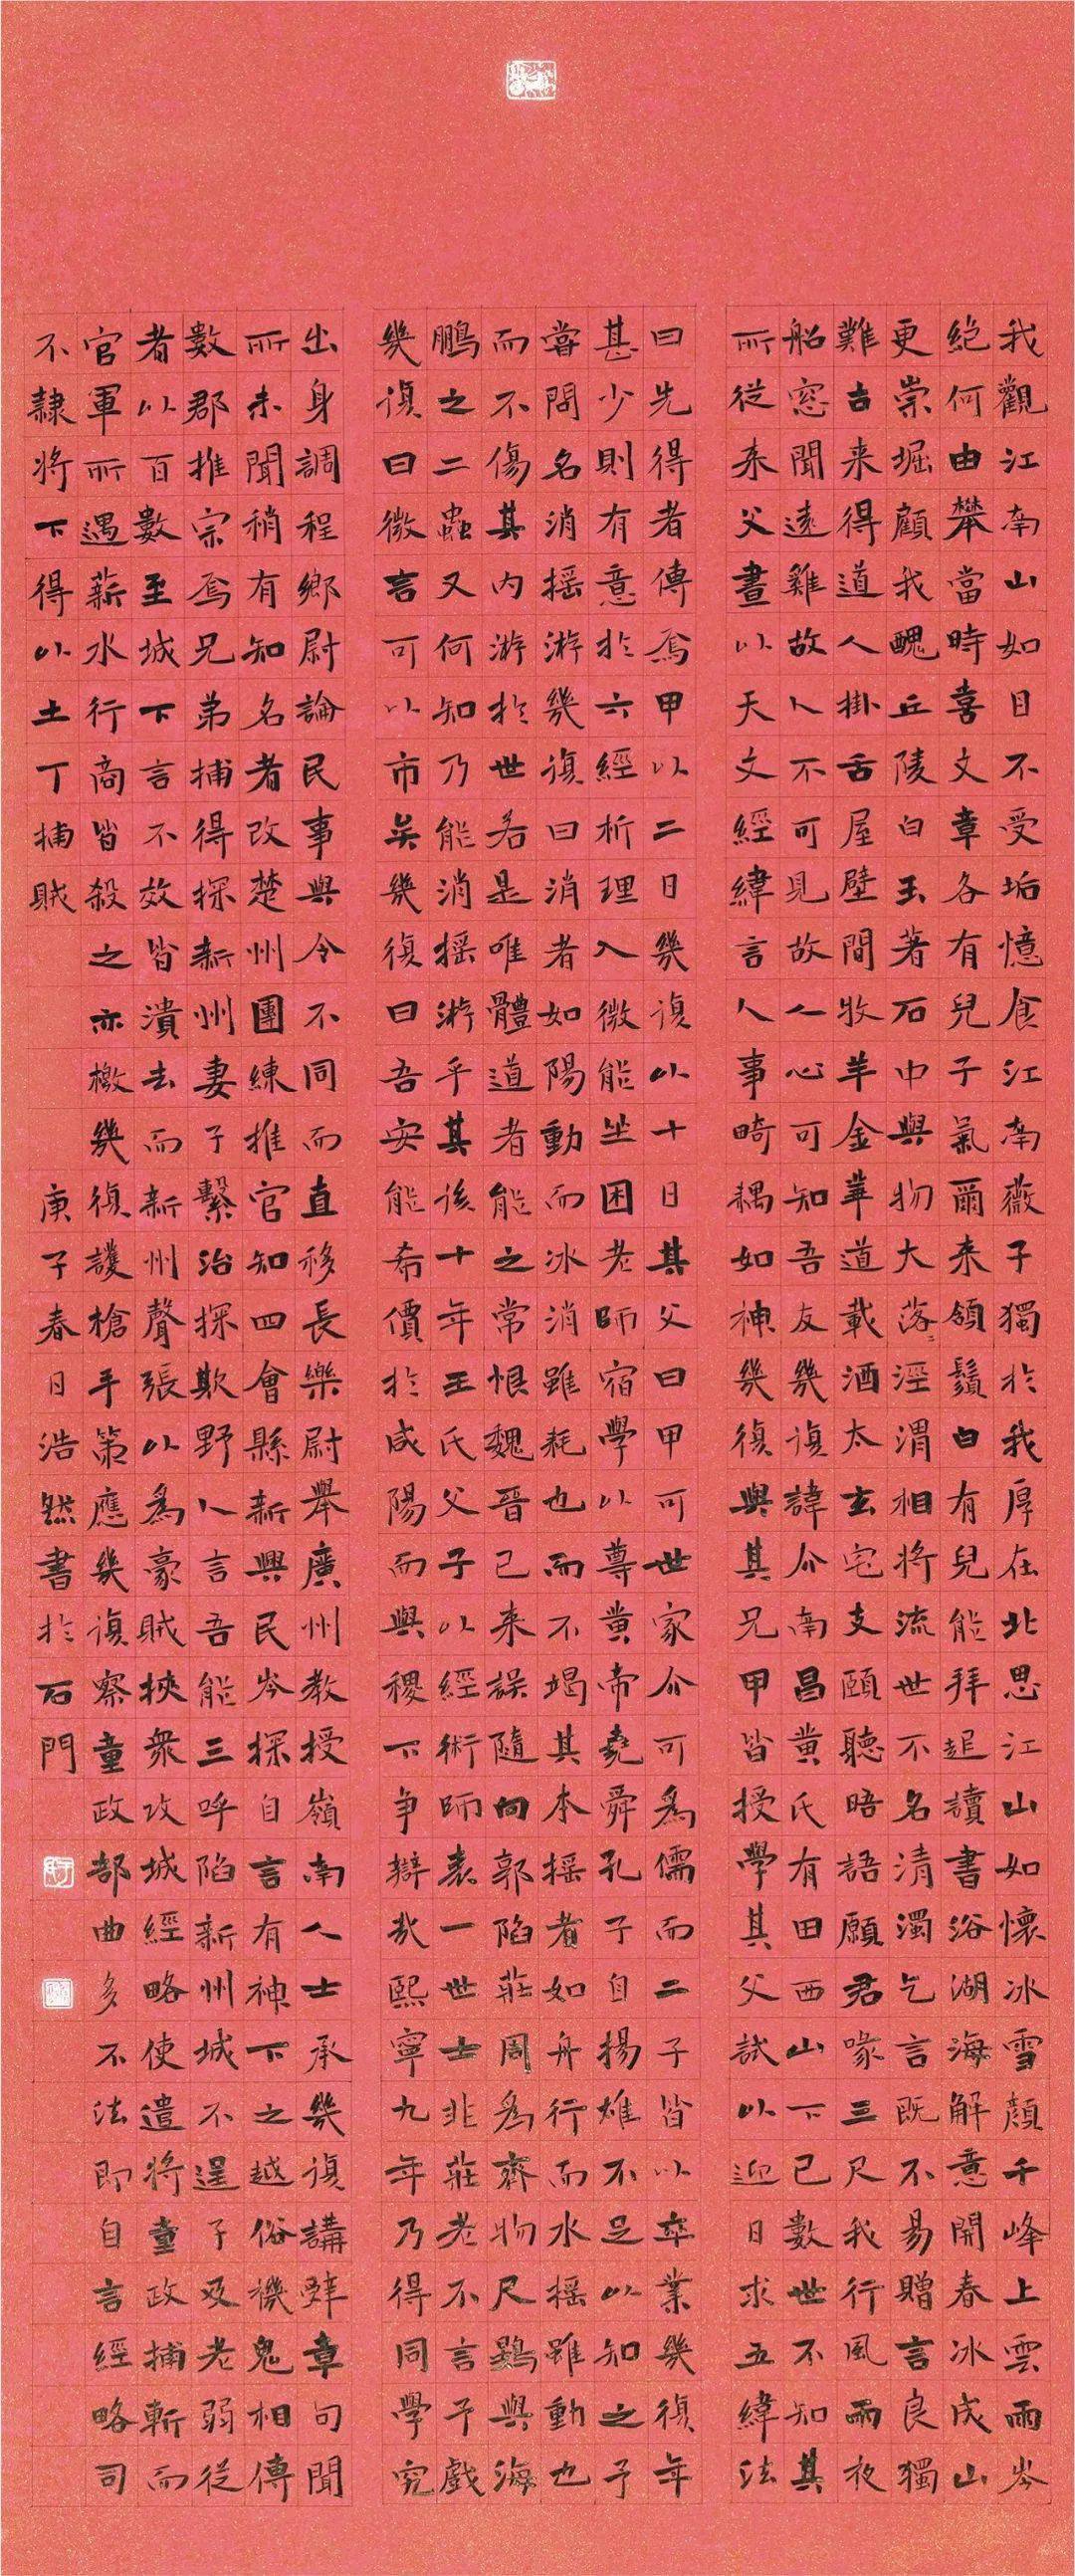 我觀江南山如目不受垢憶食江南薇子獨於我厚在北思江山如懷冰雪顏千峰上雲雨岑
絕何由攀當時喜文章各有兒子氣爾来領鬚白有兒能拜起讀書浴湖海解意開春冰成山
更崇堀顧我醜丘陵白玉著石中與物大落〻涇渭相將流世不名清濁乞言既不易贈言良獨
難古来得道人掛舌屋壁間牧羊金華道載酒太玄宅支頤聽晤語願君喙三尺我行風雨夜
船窓聞遠雞故人不可見故人心可知吾友幾復諱介南昌黄氏有田西山下已數世不知其
所從来父晝以天文經緯言人事畸耦如神幾復與其兄甲皆授學其父試以迎日求五緯法
曰先得者傳焉甲以二日幾復以十日其父曰甲可世家介可為儒而二子皆以卒業幾復年
甚少則有意於六經析理入微能坐困老師宿學以尊黄帝堯舜孔子自揚雄不足以知之予
嘗問名消摇游幾復曰消者如陽動而冰消雖耗也而不竭其本摇者如舟行而水摇雖動也
而不傷其内游於世若是唯體道者能之常恨魏晉已来誤隨向郭陷莊周為齊物尺鷃與海
鵬之二蟲又何知乃能消摇游乎其後十年王氏父子以經術師表一世士非莊老不言予戲
幾復曰微言可以市矣幾復曰吾安能希價於咸陽而與稷下争辯哉熙寧九年乃得同學究
出身調程鄉尉論民事與令不同而直移長樂尉舉廣州教授嶺南人士承幾復講辭章句聞
所未聞稍有知名者改楚州團練推官知四會縣新興民岑探自言有神下之越俗禨鬼相傳
數郡推宗焉兄弟捕得探新州妻子繫治探欺野人言吾能三呼陷新州城不逞子及老弱從
者以百數至城下言不效皆潰去而新州聲張以為豪賊挾衆攻城經略使遣將童政捕斬而
官軍所遇薪水行商皆殺之亦檄幾復護槍手策應幾復察童政部曲多不法即自言經略司
不隸將下得以土丁捕賊
庚子春日浩然書於石門